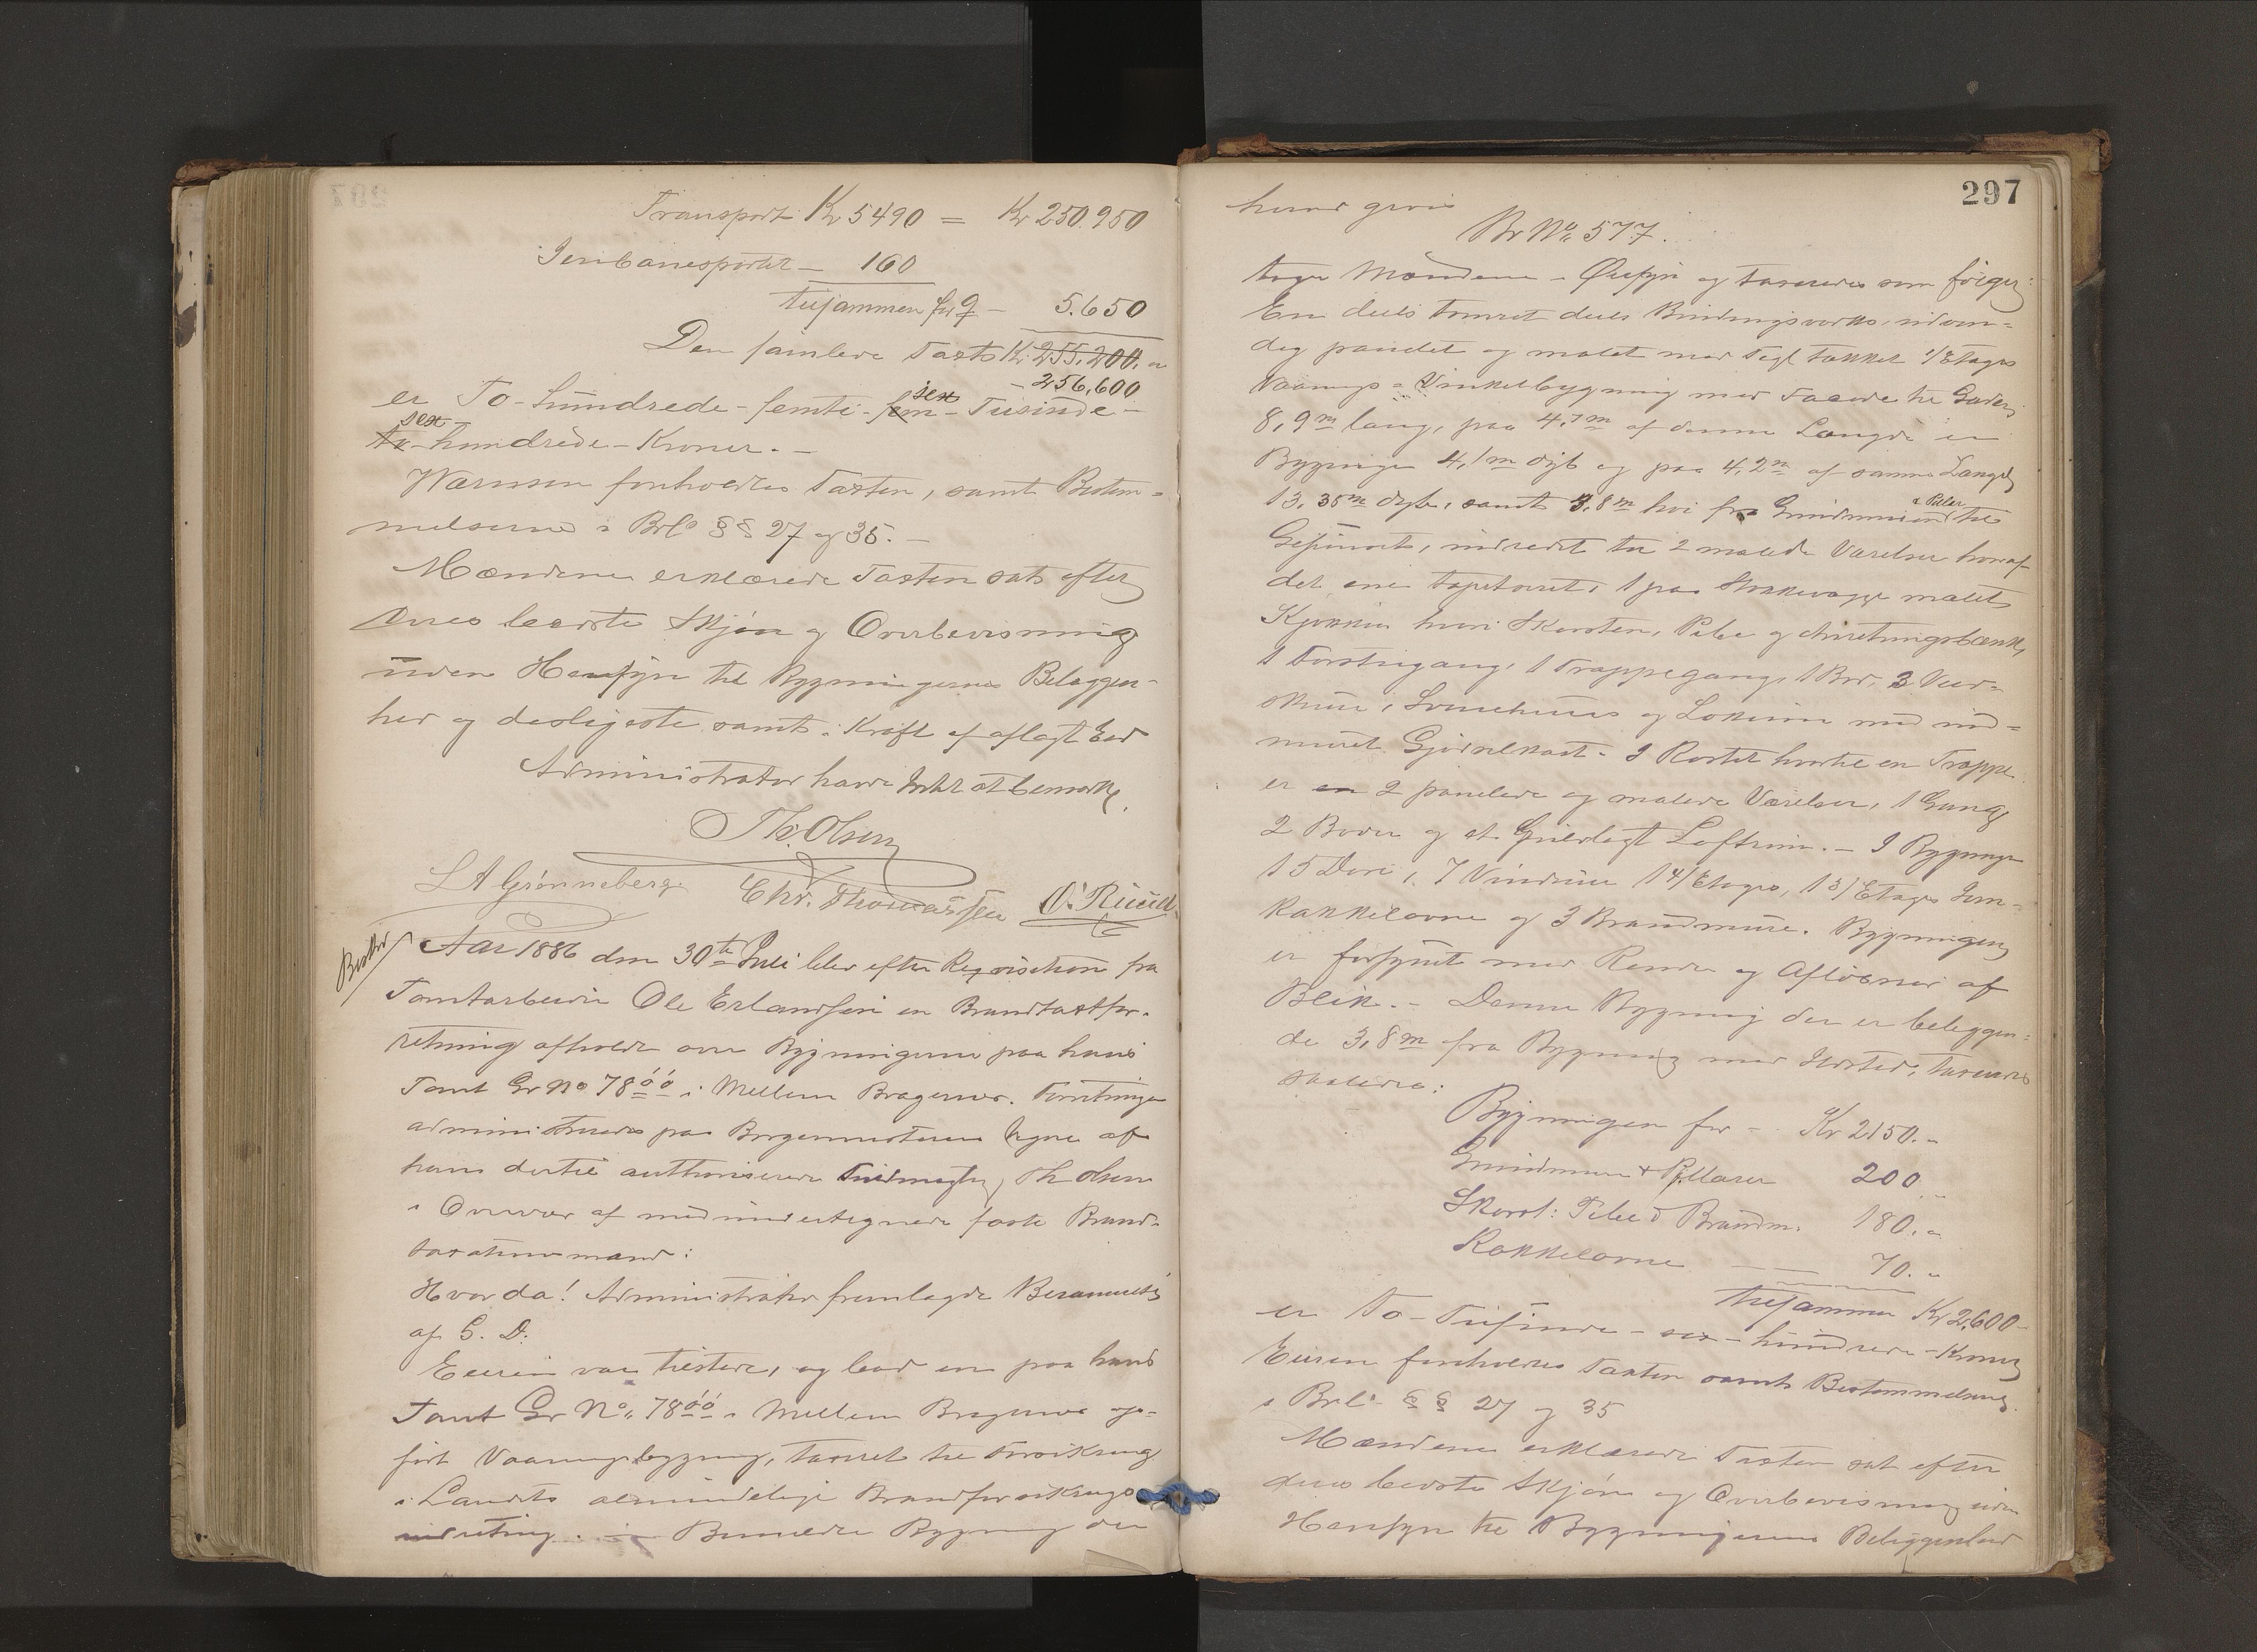 Transport Kr 5490 = Kr 250.950
Jernbanesporet — 160
tilsammen for 9 — 5.650
Den samlede Taxt Kr 255,200.
- 256,600
er To-hundrede-femti-fem sex-Tusinde-
to sex-hundrede-Kroner. —
Værnsen forholdtes Taxten, samt Bestem-
melserne i Brl. §§ 27 og 35. —
Mændene erklærede Taxten sat efter
deres bedste Skjøn og Overbevisning
uden Hensyn til Bygningernes Beliggen-
hed og desligeste samt i Kraft af aflagt Eed
Administrator havde Intet at bemærke.
Th. Olsen
L A Grønneberg Chr. Thomassen O. Ruud
Aar 1886 den 30te Juli blev efter Reqvisition fra
Tomtarbeider Ole Erlandsen en Brandtaxtfor-
retning afholdt over Bygningerne paa hans
Tomt Gr No 78 óó i Mellem Bragernes. Forretningen
administreredes paa Borgermesterens Vegne af
hans dertil authoriserede Fuldmægtig Th Olsen
i Overvær af medundertegnede faste Brand-
taxationsmænd:
Hvor da! Administrator fremlagde Berammelse
af S. D.
Eieren var tilstede, og lod en paa hans
Tomt Gr No 78 óó i Mellem Bragernes op-
ført Vaaningsbygning, taxeret til Forsikring
i Landets almindelige Brandforsikrings-
indretning. — Bemeldte Bygning der
297
Br No 577.
toges Mændene i Øiesyn og taxeredes som følger:
En deels tømret deels Bindingsværks, udven-
dig panelet og malet med Tegl tækket 1/Etages
Vaanings- Vinkelbygning med Facade til Gaden
8,9 m lang, paa 4,7 m af denne Længde er
Bygningen 4,1 m dyb og paa 4,2 m af samme Længde
13,35 m dyb, samt 3,8 m høi fra Grundmuren & Pillar til
Gesimset, indredet til 2 malede Værelser hvoraf
det ene tapetseret, 1 paa Strækvægge malet
Kjøkken hvori Skorsten, Pibe og Anretningsbænk,
1 Forstuegang, 1 Trappegang, 1 Bod, 3 Ved-
skure, Svinehuus og Lokum med ned-
muret Gjødselkast. I Røstet hvortil en Trappe
er en 2 panelede og malede Værelser, 1 Gang
2 Boder og et Gulvlagt Loftrum. — I Bygningen
15 Døre, 7 Vinduer 1 4/Etages, 1 3/Etages Jern-
Kakkelovne og 3 Brandmure. Bygningen
er forsynet med Render og Afløbsrør af
Blik. — Denne Bygning der er beliggen-
de 3,8 m fra Bygning med Ildsted, taxeredes
saaledes:
Bygningen for — Kr 2150.
Grundmur & Pillarer 200
Skorst: Pibe & Brandm. 180.
Kakkelovne — 70.
tilsammen Kr 2,600
er To-Tusinde-sex-hundrede-Kroner
Eieren forholdtes Taxten samt Bestemmelserne
i Brl. §§ 27 og 35
Mændene erklærede Taxten sat efter
deres bedste Skjøn og Overbevisning uden
Hensyn til Bygningernes Beliggenhed